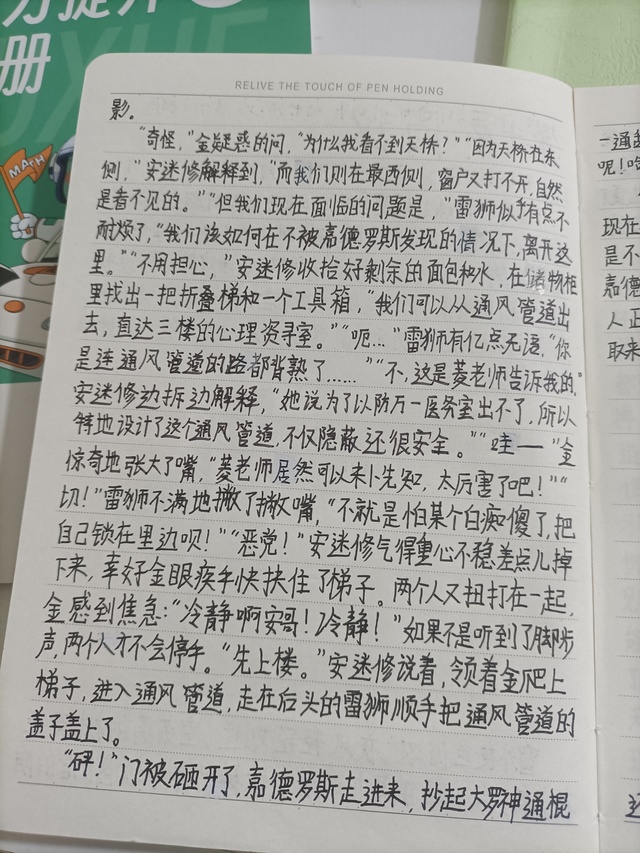 力提升
册
MACH
RELIVE THE TOUCH OF PEN HOLDING
影。
“奇怪，”金疑惑的问，“为什么我看不到天桥？”“因为天桥在东
侧，”安迷修解释到，“而我们则在最西侧，窗户又打不开，自然
是看不见的。”“但我们现在面临的问题是，”雷狮似乎有点不
耐烦了，“我们该如何在不被嘉德罗斯发现的情况下，离开这
里。”“不用担心，”安迷修收拾好剩余的面包和水，在储物柜
里找出一把折叠梯和一个工具箱，“我们可以从通风管道出
去，直达三楼的心理资寻室。”“呃…”雷狮有亿点无语，“你
是连通风管道的路都背熟了……”“不，这是菱老师告诉我的。”
安迷修边拆边解释，“她说为了以防万一医务室出不了，所以
特地设计了这个通风管道，不仅隐蔽还很安全。”“哇——”金
惊奇地张大了嘴，“菱老师居然可以未卜先知，太厉害了吧！”“
切！”雷狮不满地撇了撇嘴，“不就是怕某个白痴傻了，把
自己锁在里边呗！”“恶党！”安迷修气得重心不稳差点儿掉
下来，幸好金眼疾手快扶住了梯子。两个人又扭打在一起，
金感到焦急：“冷静啊安哥！冷静！”如果不是听到了脚步
声，两个人才不会停手。“先上楼。”安迷修说着，领着金爬上
梯子，进入通风管道，走在后头的雷狮顺手把通风管道的
盖子盖上了。
“砰！”门被砸开了，嘉德罗斯走进来，抄起大罗神通棍
一通
呢！
现在
是不
嘉德
人正
取来
还